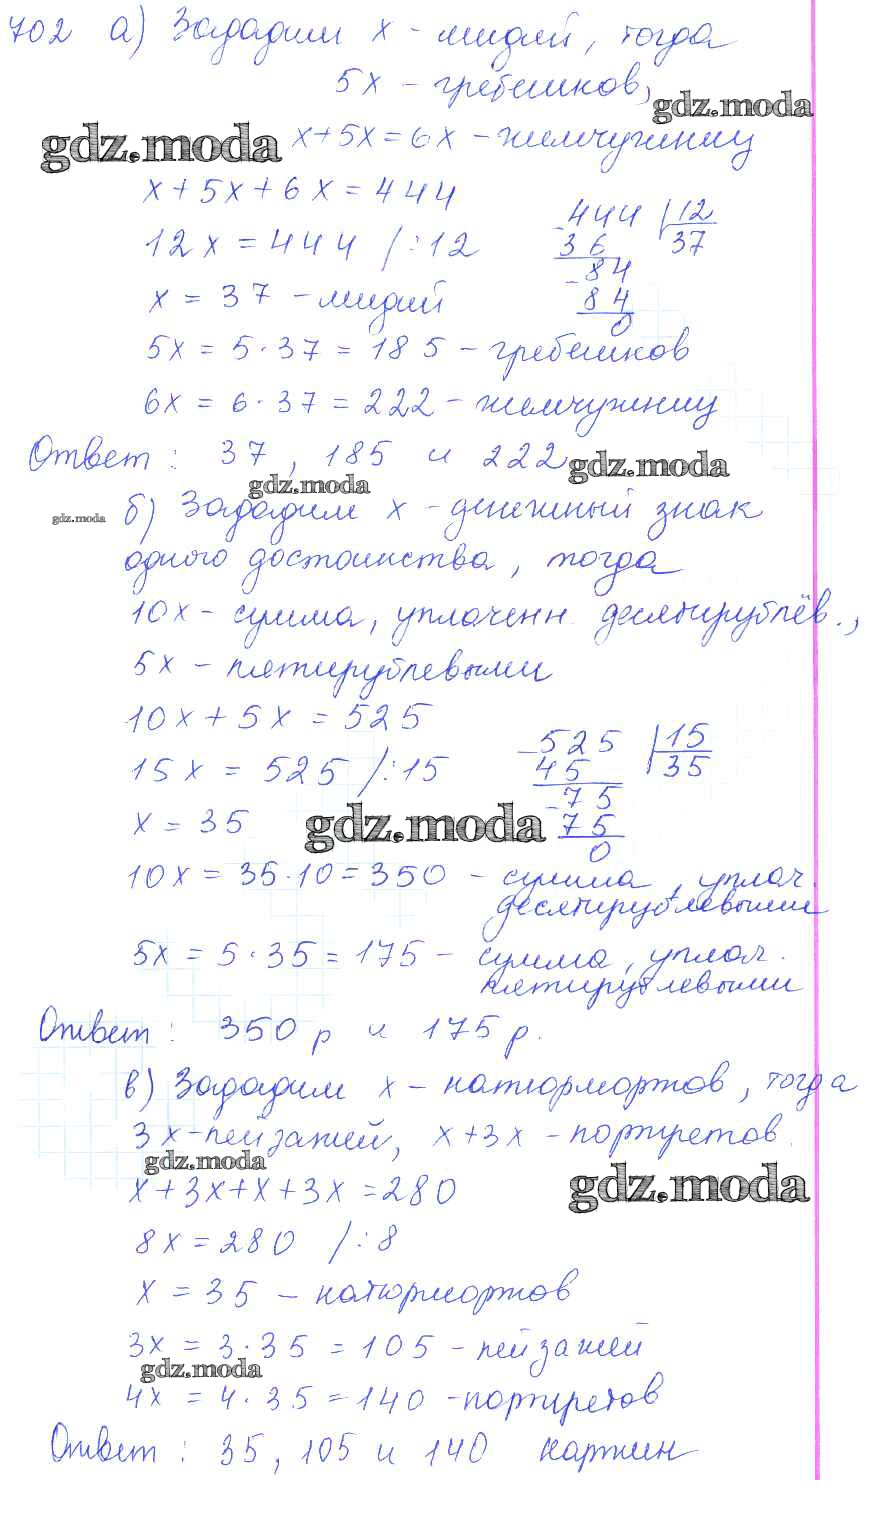 702 а) Зададим x - мидий, тогда
5x - гребешков,
gdz.moda
gdz.moda
x+5x=6x - жемчужниц
x+5x+6x=444
12x=444 /:12
444 | 12
36 37
84
84
0
x = 37 - мидий
5x = 5·37 = 185 - гребешков
6x = 6·37 = 222 - жемчужниц
Ответ: 37, 185 и 222
gdz.moda
gdz.moda
gdz.moda
б) Зададим x - денежный знак
одного достоинства, тогда
10x - сумма, уплаченн. десятирублёв.,
5x - пятирублевыми
10x+5x=525
15x = 525 /:15
525 | 15
45 35
75
75
0
x = 35
gdz.moda
10x = 35·10=350 - сумма, уплач.
десятирублевыми
5x = 5·35=175 - сумма, уплач.
пятирублевыми
Ответ: 350 р и 175 р.
в) Зададим x - натюрмортов, тогда
3x - пейзажей, x+3x - портретов.
gdz.moda
gdz.moda
x+3x+x+3x=280
8x=280 /:8
x = 35 - натюрмортов
3x = 3·35 = 105 - пейзажей
gdz.moda
4x = 4·35=140 - портретов
Ответ: 35, 105 и 140 картин